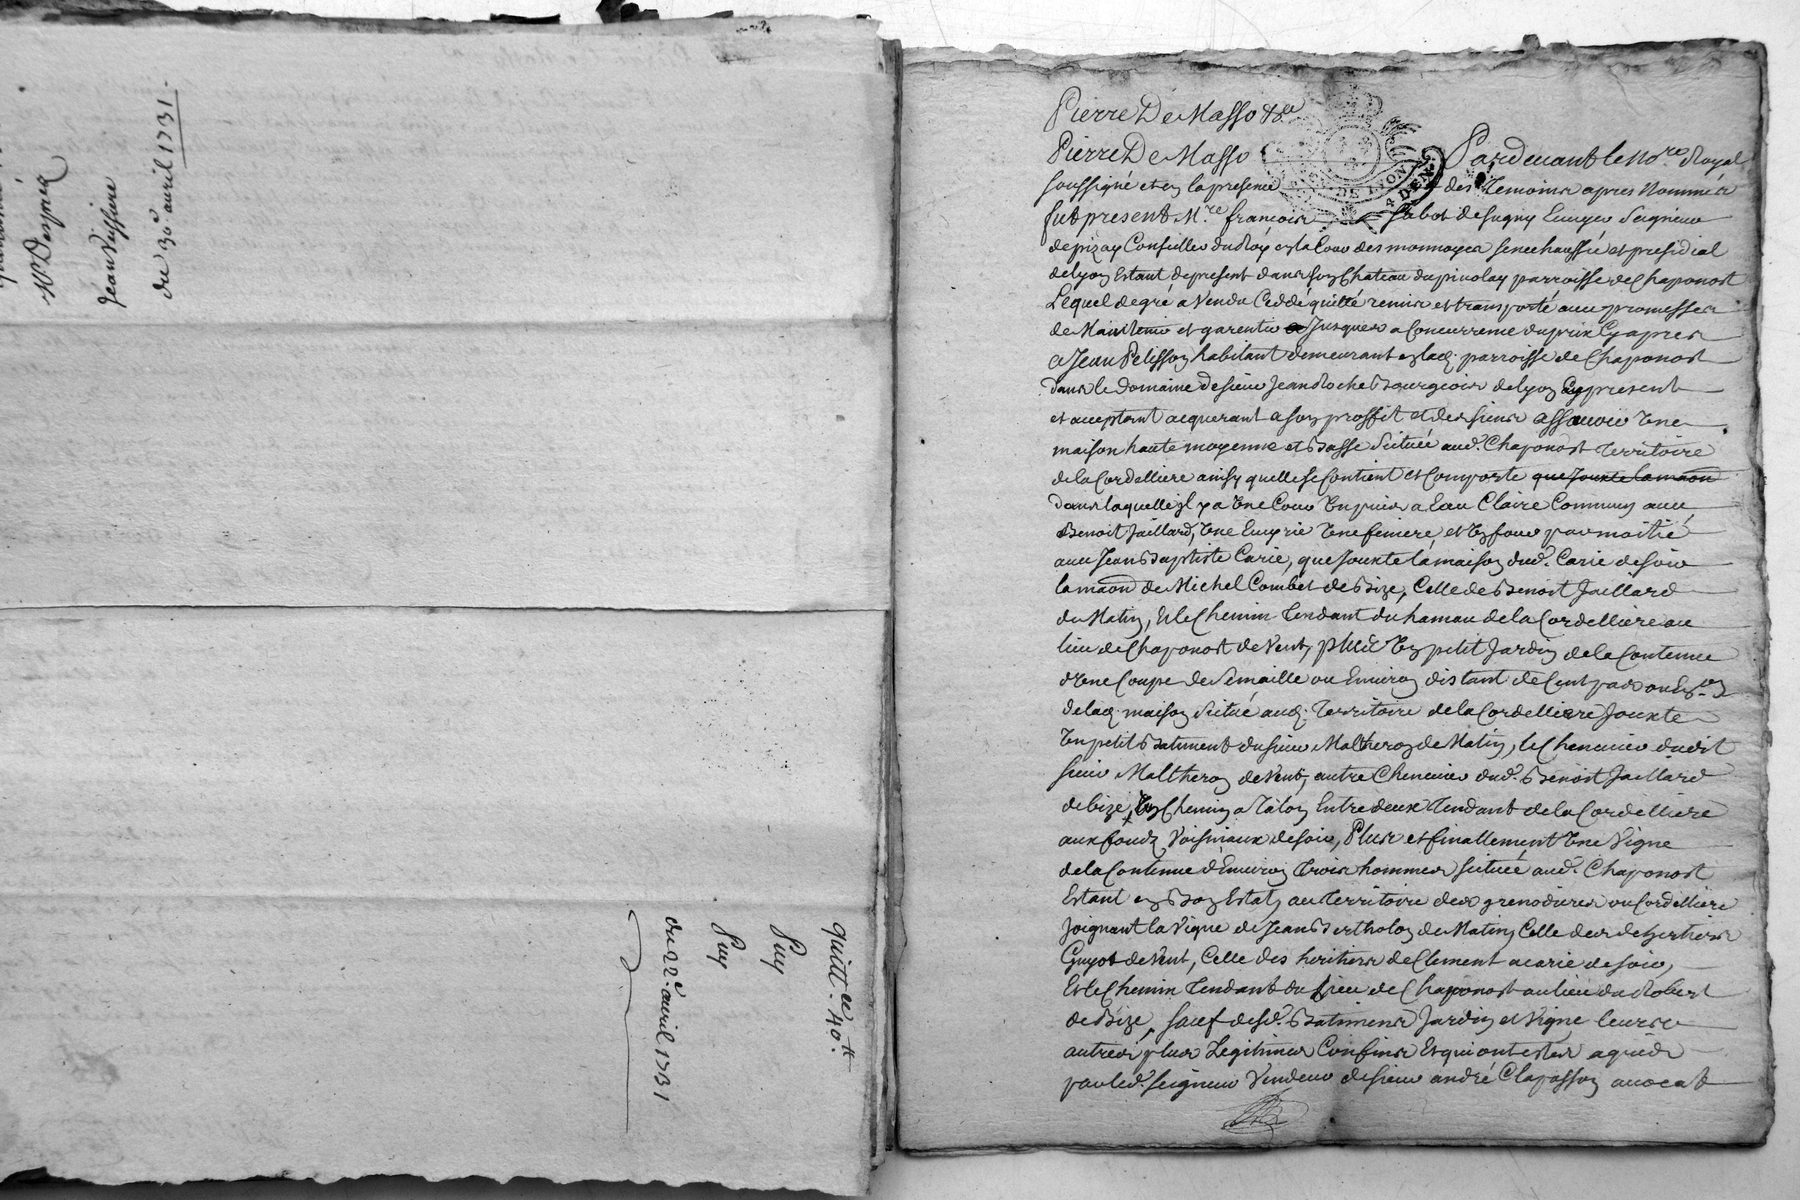 Mr Despréz
Jean Veyssiere
du 30e avril 1731.
quittce. 40tt.
Puy
Puy
du 22e. avril 1731
Pierre De Masso
Pierre De Masso
Pardevant le no.re Royal
soussigné et en la presence des temoins apres nommés
fut present M.re francois Sabot de sugny Ecuyer Seigneur
de pizay Conseiller du Roy en la Cour des monnoyes senechaussée et presidial
de lyon Estant de present dans son Chateau du pinolay parroisse de Chaponost
Lequel de gré a Vendu Ceddé quitté remis et transporté avec promesse
de Maintenir et garentir Jusques a Concurrence du prix Cy apres
a Jean Pelisson habitant demeurant en lad. parroisse de Chaponost
dans le domaine de sieur Jean Roche Bourgeois de lyon Cy present
et acceptant acquerant a son proffit et des siens assavoir Une
maison haute moyenne et Basse Scituée aud. Chaponost Territoire
de la Cordelliere ainsy quelle se Contient et Comporte que Jouxte la maon
dans laquelle jl y a Une Cour Un puis a Eau Claire Commun avec
Benoit Jaillard, Une Ecurie Une feniere, et Un four par moitié
avec Jean Baptiste Carie, que Jouxte la maison dud. Carie de soir
la maon de Michel Combet de Bize, Celle de Benoit Jaillard
du Matin, Et le Chemin Tendant du hameau de la Cordelliere au
lieu de Chaponost de Vent, plus Un petit Jardin de la Contenue
d'Une Coupe de Semaille ou Environ distant de Cent pas ou En.on
de lad. maison Scitué aud. Territoire de la Cordelliere Jouxte
Un petit Batiment du sieur Maltheron de Matin, le Chenevier dudit
sieur Maltheron de Vent, autre Chenevier dud. Benoit Jaillard
de bize, Un Chemin a Talon Entre deux Tendant de la Cordelliere
aux fonds Voisinaux de soir, Plus et finallement Une Vigne
de la Contenue d'Environ Trois hommes Scituée aud. Chaponost
Estant en Bon Estat, au Territoire des grenodieres ou Cordelliere
Joignant la Vigne de Jean Bertholon de Matin, Celle des heritiers
Guyot de Vent, Celle des heritiers de Clement acarie de soir,
Et le Chemin Tendant du Lieu de Chaponost au lieu du Robert
de Bize, sauf desd. Batiments Jardin et Vigne leurs
autres plus Legitimes Confins Et qui ont estés aquis
par led. seigneur Vendeur de sieur andré Clapasson avocat